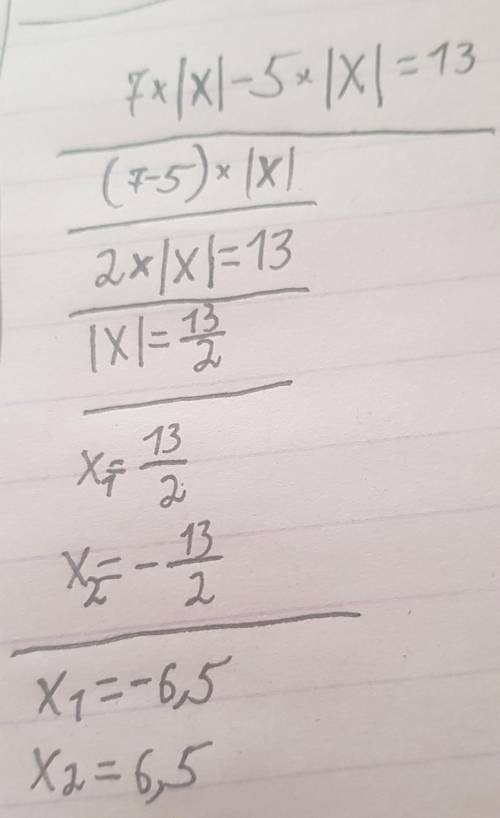 7×|X|-5×|X|=13
(7-5)×|X|
2×|X|=13
|X|=13/2
X₁=13/2
X₂=-13/2
X₁=-6,5
X₂=6,5